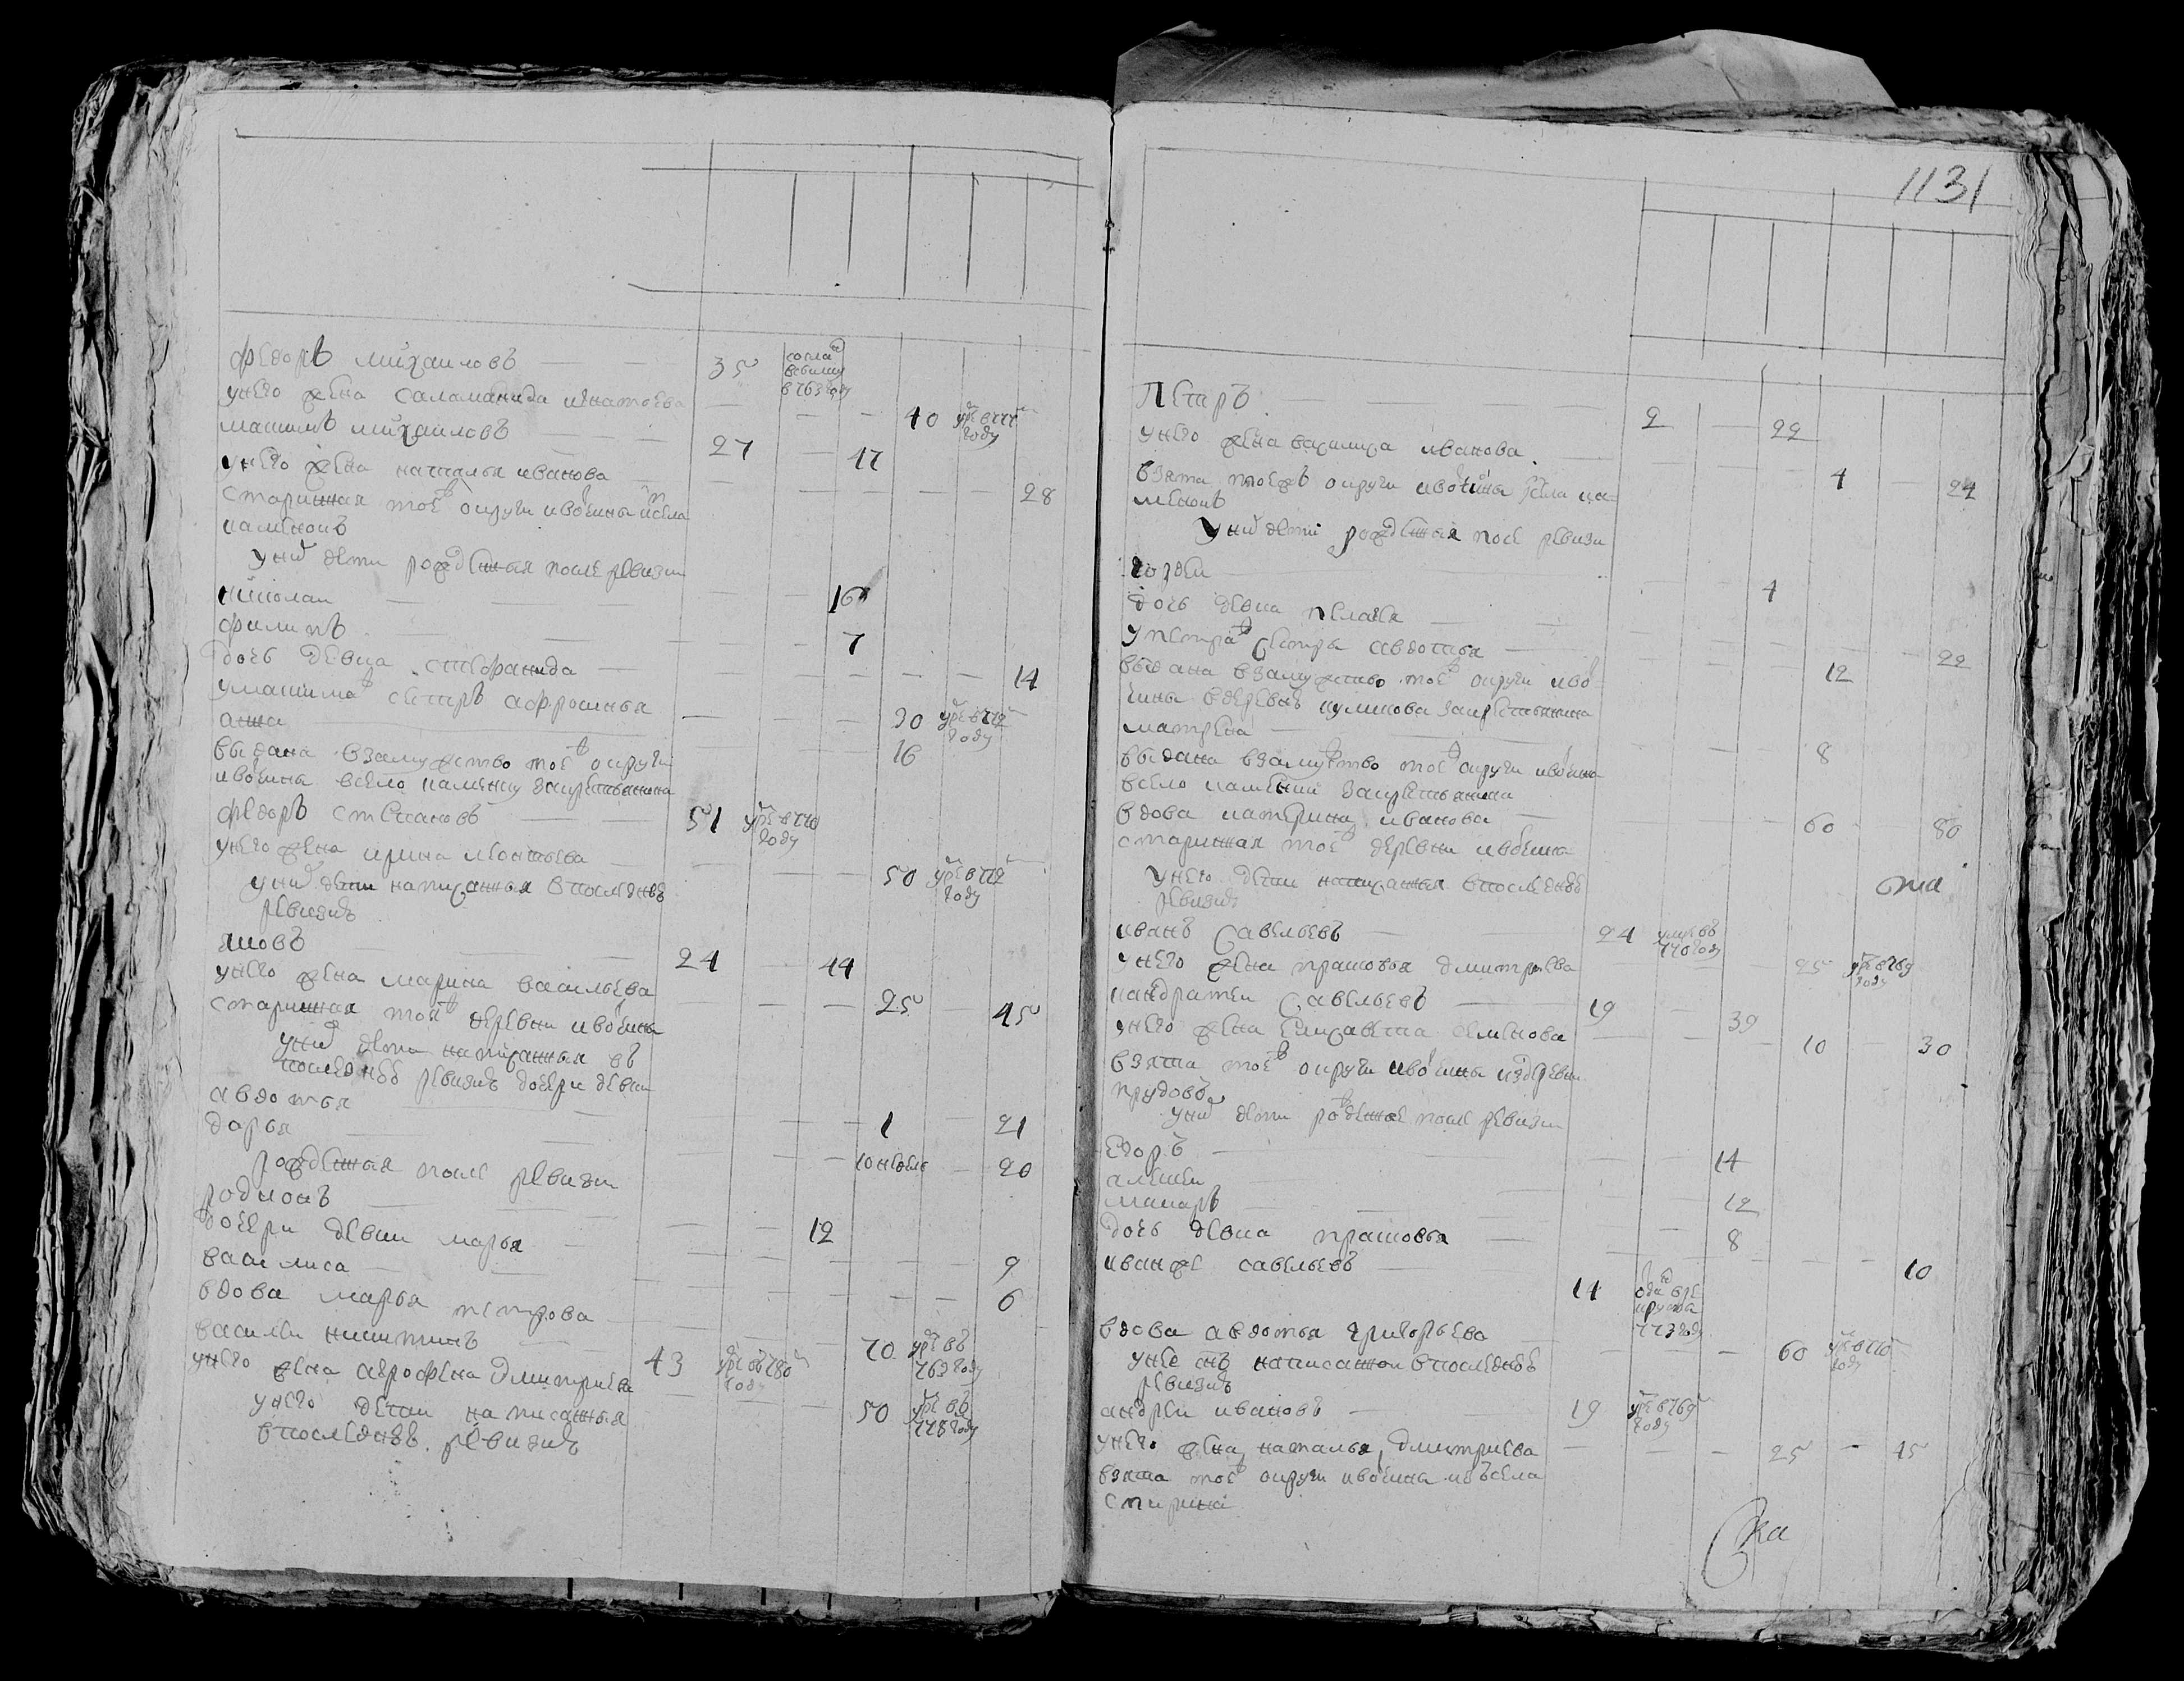 федоръ михаиловъ — — 35 сосла
в сибирь
в 763 году
у него жена саламанида игнатьева — — — 40 умре в 777
году
максимъ михаиловъ — — 27 — 47
у него жена наталья иванова — — — — — 28
старинная тоеⷤ округи и вотчины села
каменокъ
у ниⷯ дети рожденныя после ревизии
николаи — — — 16
филипъ — — — 7
дочь девка степанида — — — — — 14
у максима сестръ афросинья — — — 30 умре в 772
году
анна — 16
выдана в замужство тоеⷤ округи
и вотчины в село каменку за крестьянина
федоръ степановъ — — 51 умре в 770
году
у него жена ирина леонтьева — — — 50 умре в 772
году
у ниⷯ дети написанныя в последнеи
ревизии
яковъ — — 24 — 44
у него жена марина васильева — — — 25 — 45
старинная тоеⷤ деревни и вотчины
у ниⷯ дети написанныя въ
последнеи ревизии дочери девки
авдотья — — — 1 — 21
дарья — — — 10 недель — 20
рожденныя после ревизии
родионъ — — — 12
дочери девки марья — — — — — 9
василиса — — — — — 6
вдова марья петрова — — — 70 умре въ
763 году
василеи никитинъ — 43 умре въ 780
году
у него жена агрофена дмитриева — — — 50 умре въ
778 году
у него дети написанныя
в последнеи ревизии
1131
Петръ — — 2 — 22
у него жена василиса иванова — — — 4 — 24
взята тоежъ округи и вотчины села ка-
менокъ
у ниⷯ дети рожденныя после ревизии
— — — 4
дочь девка пелагея — — — — — 22
у петра сестры авдотья — — — 12
выдана в замужство тоеⷤ округи и вот-
чины в деревнъ куликова за крестьянина
матрена — — — 8
выдана в замужство тоеⷤ округи и вотчины
в село каменки за крестьянина
вдова катерина иванова — — — 60 — 80
старинная тоеⷤ деревни и вотчины
у него дети написанныя в последнеи
ревизии
иванъ савельевъ — — 24 умре въ
776 году
у него жена прасковья дмитриева 25 умре в 769
году
кандратеи савельевъ — 19 — 39
у него жена елизавета семенова — — — 10 — 30
взята тоеⷤ округи и вотчины из деревни
прудовъ
у ниⷯ дети рожденые после ревизии
егоръ — — — 14
алексеи — — 12
макаръ — — 8
дочь девка прасковья — — — — — 10
иванже савельевъ — 14 отда в ре
круты
773 году
вдова авдотья григорьева — — — 60 умре в 770
году
у нее снъ написанной в последнеи
ревизии
андреи ивановъ — — 19 умре в 769
году
у него жена наталья дмитриева — — — 25 — 45
взята тоеⷤ округи и вотчины изъ села
спирина